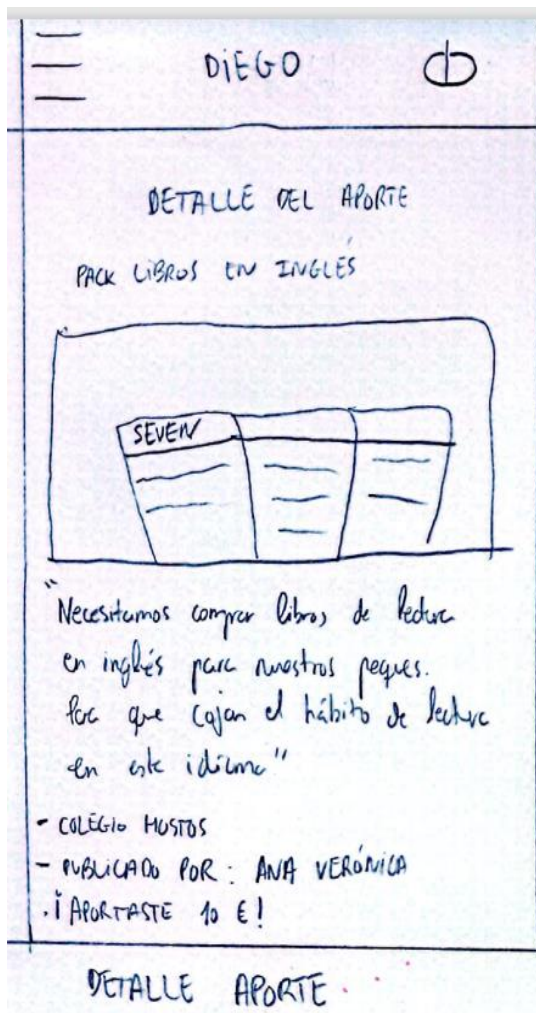 DiEGO
DETALLE DEL APORTE
PACK LiBROS EN INGLÉS
SEVEN
"Necesitamos comprar libros de lectura
en inglés para nuestros peques.
Para que cojan el hábito de lectura
en este idioma"
- COLEGIO HOSTOS
- PUBLICADO POR: ANA VERÓNICA
. ¡APORTASTE 10 €!
DETALLE APORTE